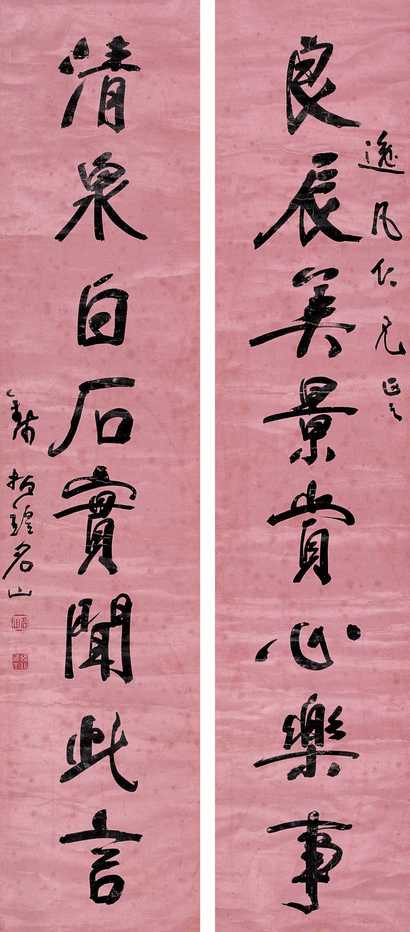 逸凡仁兄正之
良辰美景賞心樂事
清泉白石實聞此言
錢振鍠名山